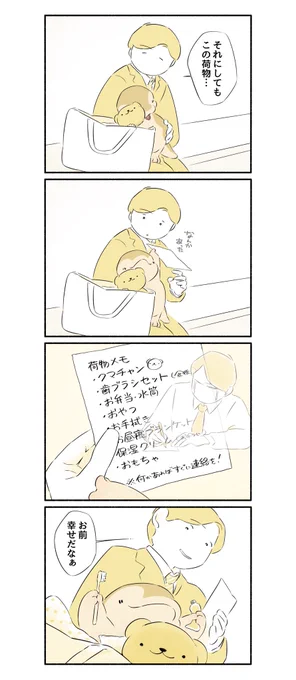 それにしても
この荷物…
なんか
荷物メモ
・クマチャン
・歯ブラシセット
・お弁当・水筒
・おやつ
・お手拭き
・お昼寝ブランケット
・保湿クリーム
・おもちゃ
※何かあればすぐに連絡を!
お前
幸せだなぁ